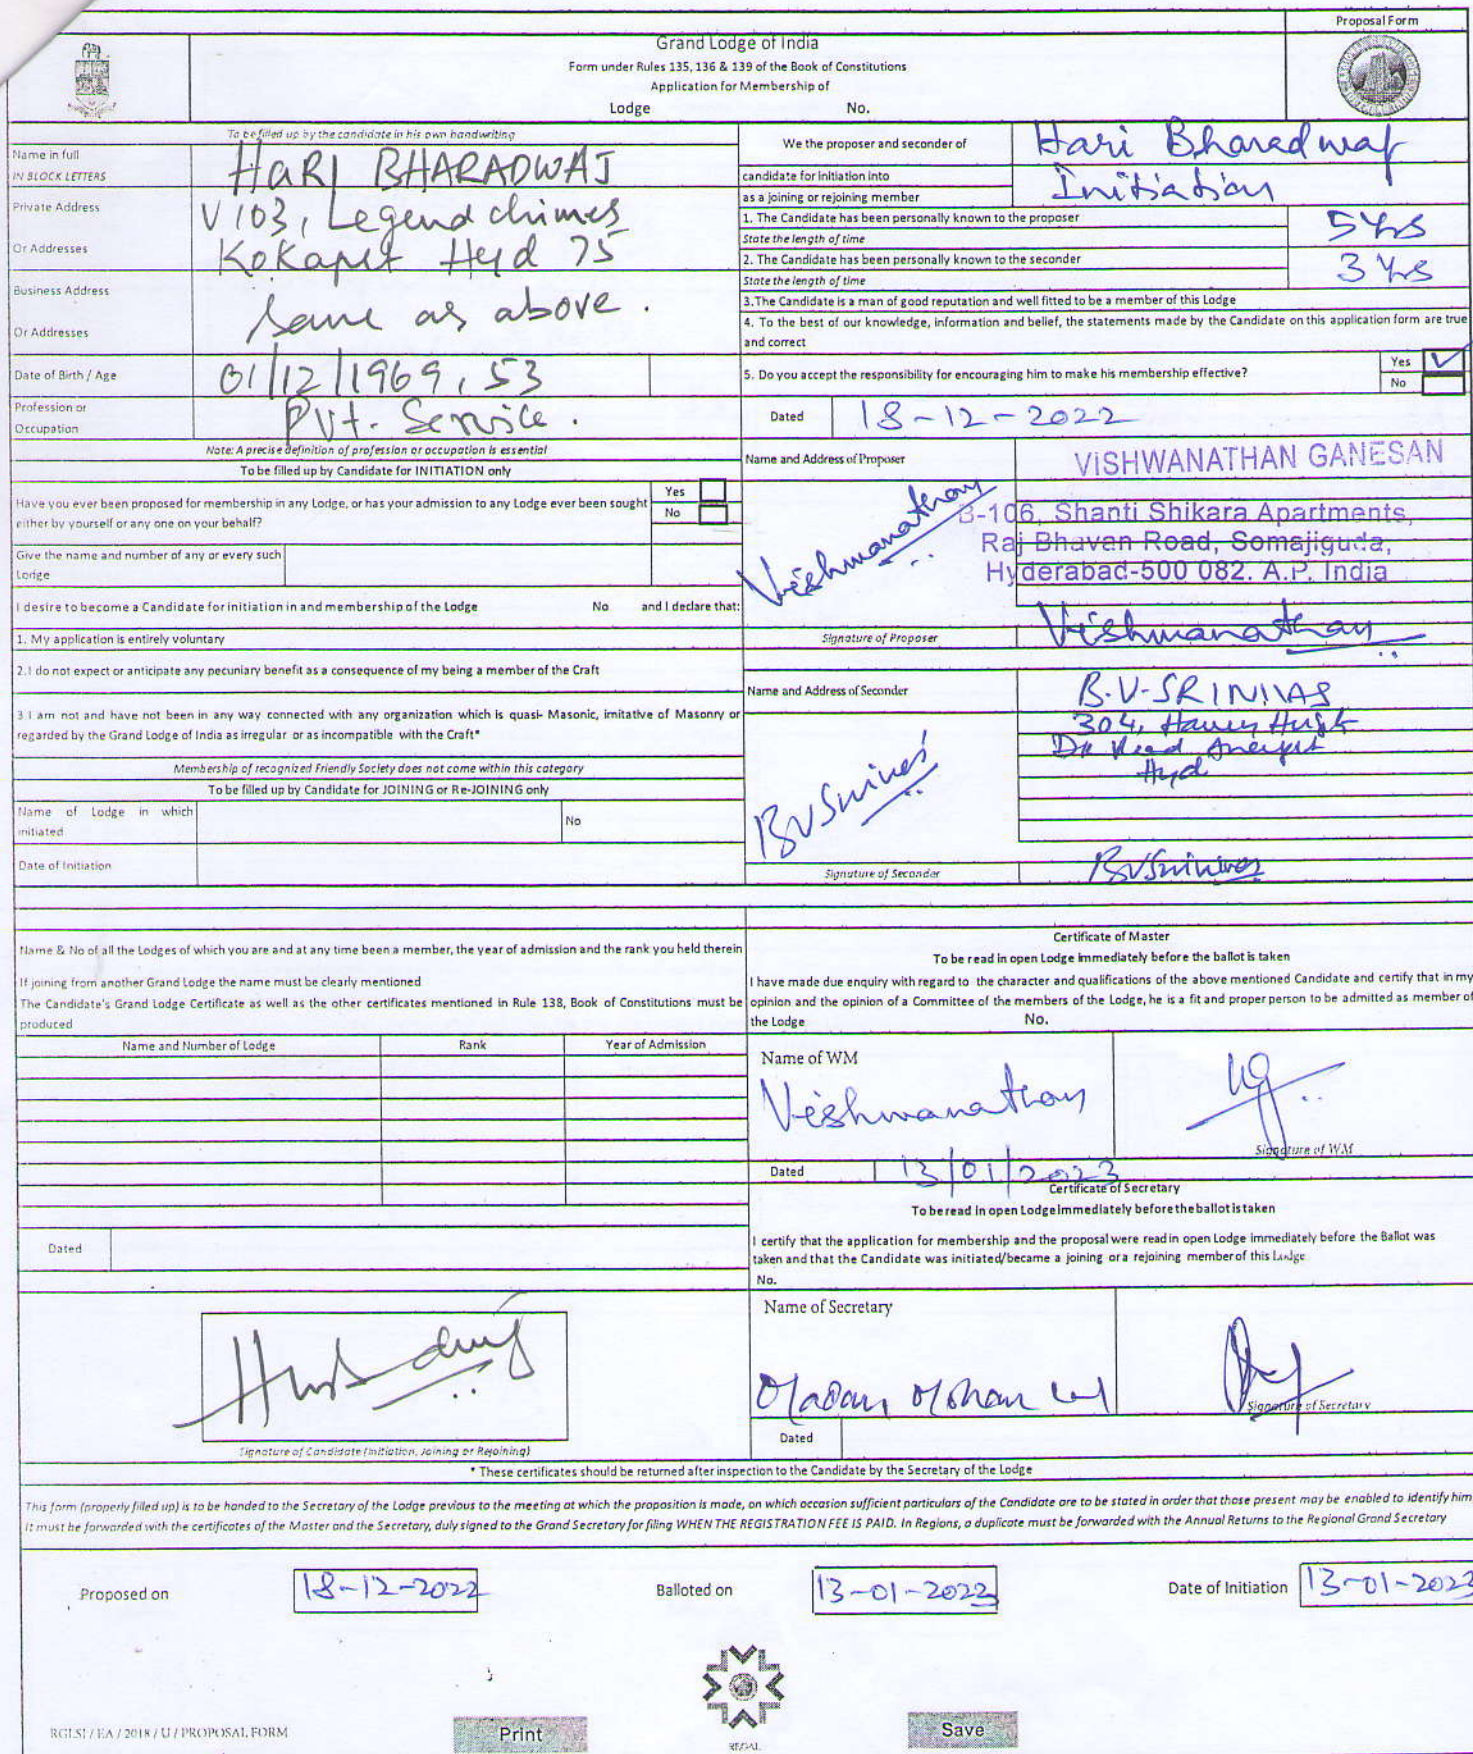 Proposal Form
Grand Lodge of India
Form under Rules 135, 136 & 139 of the Book of Constitutions
Application for Membership of
Lodge No.
To be filled up by the candidate in his own handwriting
Name in full
IN BLOCK LETTERS
HARI BHARADWAJ
Private Address
Or Addresses
V 103, Legend chimes
Kokapet Hyd 75
Business Address
Or Addresses
Same as above.
Date of Birth / Age
01/12/1969, 53
Profession or
Occupation
Pvt. Service.
Note: A precise definition of profession or occupation is essential
To be filled up by Candidate for INITIATION only
Have you ever been proposed for membership in any Lodge, or has your admission to any Lodge ever been sought
either by yourself or any one on your behalf?
Yes
No
Give the name and number of any or every such
Lodge
I desire to become a Candidate for initiation in and membership of the Lodge No and I declare that:
1. My application is entirely voluntary
2.I do not expect or anticipate any pecuniary benefit as a consequence of my being a member of the Craft
3 I am not and have not been in any way connected with any organization which is quasi- Masonic, imitative of Masonry or
regarded by the Grand Lodge of India as irregular or as incompatible with the Craft*
Membership of recognized Friendly Society does not come within this category
To be filled up by Candidate for JOINING or Re-JOINING only
Name of Lodge in which
initiated
No
Date of Initiation
We the proposer and seconder of
Hari Bharadwaj
candidate for initiation into
Initiation
as a joining or rejoining member
1. The Candidate has been personally known to the proposer
State the length of time
5 Yrs
2. The Candidate has been personally known to the seconder
State the length of time
3 Yrs
3.The Candidate is a man of good reputation and well fitted to be a member of this Lodge
4. To the best of our knowledge, information and belief, the statements made by the Candidate on this application form are true
and correct
5. Do you accept the responsibility for encouraging him to make his membership effective?
Yes
No
Dated 18-12-2022
Name and Address of Proposer
VISHWANATHAN GANESAN
B-106, Shanti Shikara Apartments,
Raj Bhavan Road, Somajiguda,
Hyderabad-500 082. A.P. India
Vishwanathan
Signature of Proposer
Vishwanathan
Name and Address of Seconder
B.V-SRINIVAS
304,
Hyd
BVSrinivas
Signature of Seconder
BVSrinivas
Name & No of all the Lodges of which you are and at any time been a member, the year of admission and the rank you held therein
If joining from another Grand Lodge the name must be clearly mentioned
The Candidate's Grand Lodge Certificate as well as the other certificates mentioned in Rule 138, Book of Constitutions must be
produced
Name and Number of Lodge Rank Year of Admission
Dated
Signature of Candidate (Initiation, Joining or Rejoining)
Certificate of Master
To be read in open Lodge immediately before the ballot is taken
I have made due enquiry with regard to the character and qualifications of the above mentioned Candidate and certify that in my
opinion and the opinion of a Committee of the members of the Lodge, he is a fit and proper person to be admitted as member of
the Lodge No.
Name of WM
Vishwanathan
Signature of WM
Dated 13/01/2023
Certificate of Secretary
To be read in open Lodge immediately before the ballot is taken
I certify that the application for membership and the proposal were read in open Lodge immediately before the Ballot was
taken and that the Candidate was initiated/became a joining or a rejoining member of this Lodge
No.
Name of Secretary
Madan Mohan Lal
Signature of Secretary
Dated
* These certificates should be returned after inspection to the Candidate by the Secretary of the Lodge
This form (properly filled up) is to be handed to the Secretary of the Lodge previous to the meeting at which the proposition is made, on which occasion sufficient particulars of the Candidate are to be stated in order that those present may be enabled to identify him
It must be forwarded with the certificates of the Master and the Secretary, duly signed to the Grand Secretary for filing WHEN THE REGISTRATION FEE IS PAID. In Regions, a duplicate must be forwarded with the Annual Returns to the Regional Grand Secretary
Proposed on 18-12-2022 Balloted on 13-01-2023 Date of Initiation 13-01-2023
RGLSI / EA / 2018 / U / PROPOSAL FORM
Print
REGAL
Save